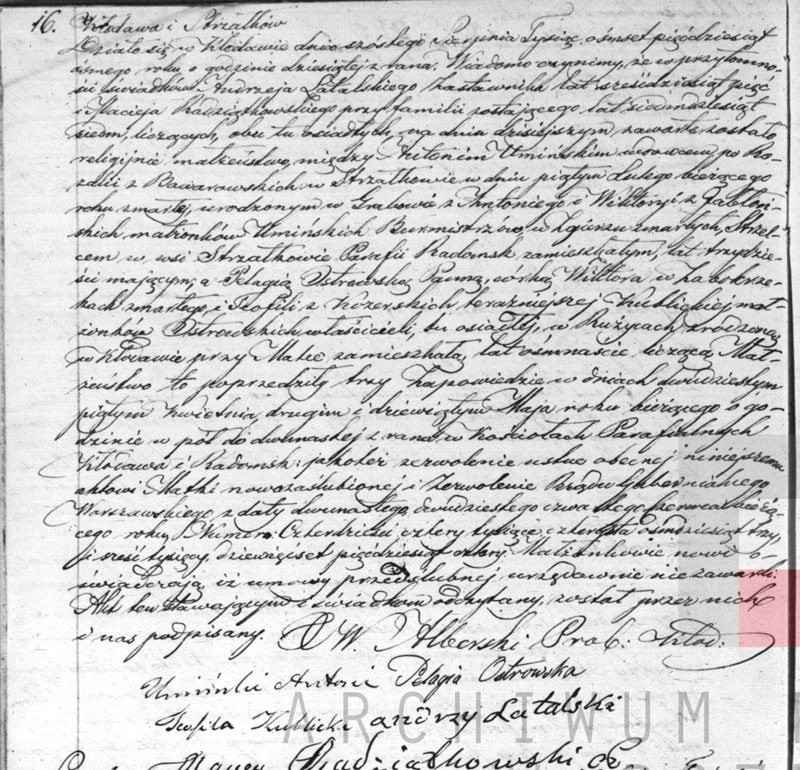 16. Kłodawa i Strzałków
Działo się w Kłodawie dnia szóstego Sierpnia Tysiąc ośmset pięćdziesiąt
ósmego roku o godzinie dziesiątej z rana. Wiadomo czynimy, że w przytomno-
ści świadków Andrzeja Latalskiego Zastawnika lat sześćdziesiąt pięć
i Macieja Radziątkowskiego przy familii zostającego lat siedmdziesiąt
siedm, liczących, obu tu osiadłych, na dniu dzisiejszym zawarte zostało
religijne małżeństwo, między Antonim Umińskim wdowcem po Ro-
zalii z Bawarowskich w Strzałkowie w dniu piątym Lutego bieżącego
roku zmarłej, urodzonym w Grabowie z Antoniego i Wiktoryi z Jabłoń-
skich małżonków Umińskich Burmistrzów w Zgierzu zmarłych, Strzel-
cem w wsi Strzałkowie Parafii Radomsk zamieszkałym, lat trzydzie-
ści mającym; a Pelagią Ostrowską Panną, córką Wiktora w
zmarłego, i Teofili z teraźniejszej Kublickiej mał-
żonków Ostrowskich właścicieli, tu osiadłej, w Rużycach zrodzoną
w Kłodawie przy Matce zamieszkałą, lat ośmnaście liczącą. Mał-
żeństwo to poprzedziły trzy zapowiedzie w dniach dwudziestym
piątym Kwietnia, drugim i dziewiątym Maja roku bieżącego o go-
dzinie w pół do dwunastej z rana w Kościołach Parafialnych
Kłodawa i Radomsk: jakoteż zezwolenie ustne obecnej niniejszemu
aktowi Matki nowozaślubionej i Zezwolenie Rządu Gubernialnego
Warszawskiego z daty dwunastego, dwudziestego czwartego bieżą-
cego roku, Numero: Czterdzieści cztery tysiące, czterysta ośmdziesiąt trzy,
i sześć tysięcy, dziewięćset pięćdziesiąt cztery. Małżonkowie nowi o-
świadczają, iż umowy przedślubnej, urzędownie nie zawarli.
Akt ten stawającym i świadkom odczytany, został przez nich
i nas podpisany. X W. Alberski Prob: Kłod:
Umiński Antoni Pelagia Ostrowska
Teofila Kublicka andrzy Latalski
ARCHIWUM